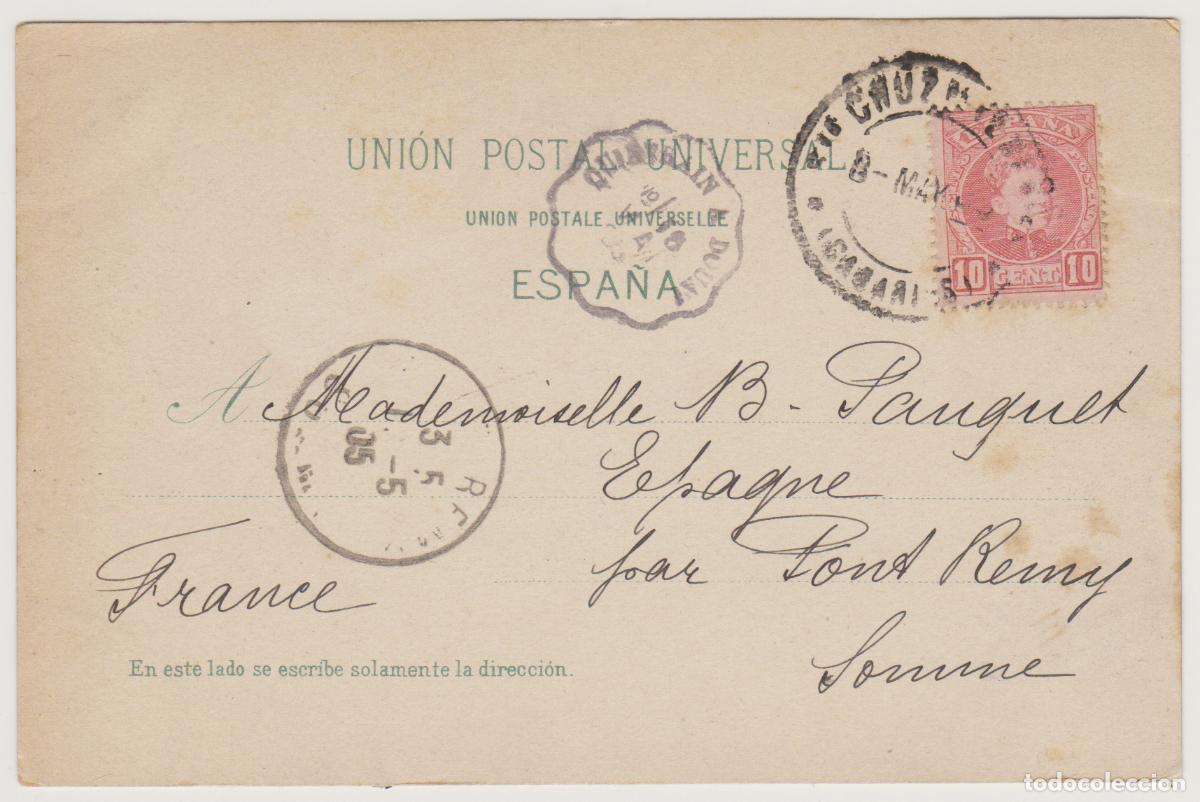 UNIÓN POSTAL UNIVERSAL
UNION POSTALE UNIVERSELLE
ESPAÑA
CRUZ
8 - MAY
ESPAÑA
10 CENT 10
DOUAI
A Mademoiselle B - Panquet
Epagne
par Pont Remy
France
Somme
3 5
1 -5
05
En este lado se escribe solamente la dirección.
todocoleccion